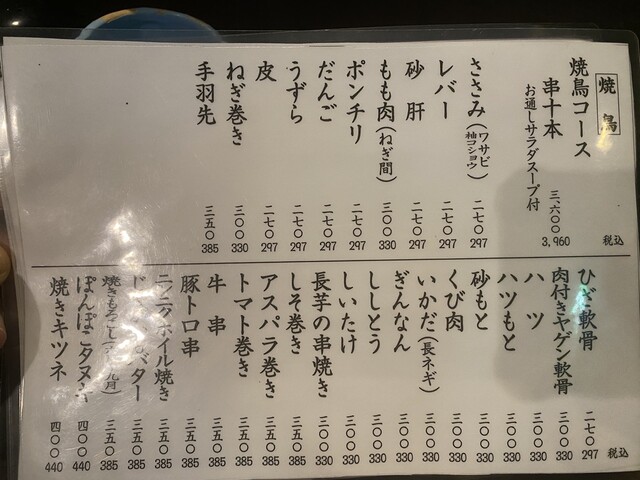 焼鳥
税込
焼鳥コース
串十本
お通しサラダスープ付
三、六〇〇
3,960
ささみ(ワサビ 柚コショウ)
二七〇
297
レバー
二七〇
297
砂肝
二七〇
297
もも肉(ねぎ間)
三〇〇
330
ポンチリ
二七〇
297
だんご
二七〇
297
うずら
二七〇
297
皮
二七〇
297
ねぎ巻き
三〇〇
330
手羽先
三五〇
385
税込
ひざ軟骨
二七〇
297
肉付きヤゲン軟骨
三〇〇
330
ハツ
三〇〇
330
ハツもと
三〇〇
330
砂もと
三〇〇
330
くび肉
三〇〇
330
いかだ(長ネギ)
三〇〇
330
ぎんなん
三〇〇
330
ししとう
三〇〇
330
しいたけ
三〇〇
330
長芋の串焼き
三〇〇
330
しそ巻き
三五〇
385
アスパラ巻き
三五〇
385
トマト巻き
三五〇
385
牛串
三五〇
385
豚トロ串
三五〇
385
ニンニクホイル焼き
三五〇
385
バター
三五〇
385
焼きもろこし
三五〇
385
ぽんぽこタヌキ
四〇〇
440
焼きキツネ
四〇〇
440